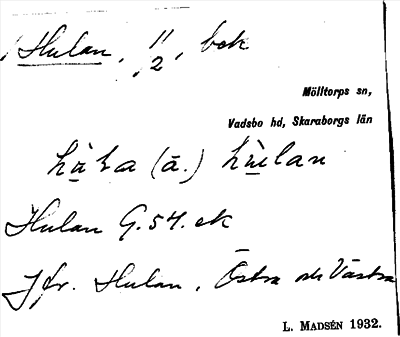 Hulan, 11/2, bok
Mölltorps sn,
Vadsbo hd, Skaraborgs län
(ä.)
Hulan G.54. ek
Jfr. Hulan, Östra och Västra
L. MADSÉN 1932.